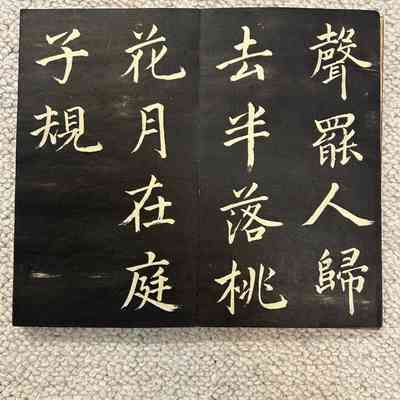 聲罷人歸
去半落桃
花月在庭
子規